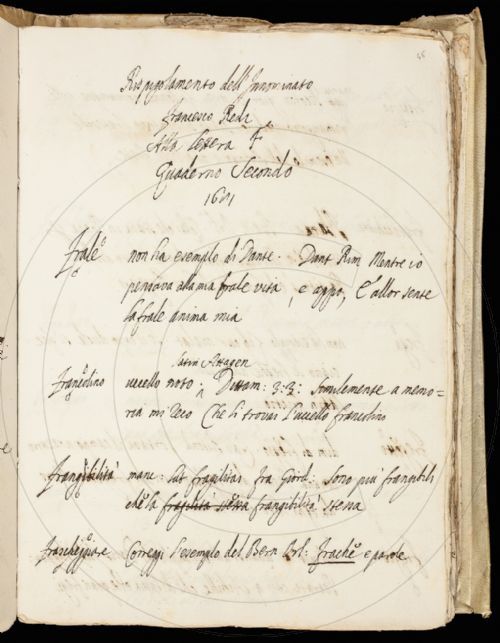 Rispigolamento dell'Innominato
Francesco Redi
Alla lettera F
Quaderno Secondo
1691
Frale non ha esempio di Dante. Dant Rim Mentre io
pensava alla mia frale vita, e appo, E allor sente
la frale anima mia
latin Attagen
Francolino uccello noto. Dittam: 3:3: Similemente a memo=
ria mi reco Che li trovai l'uccello francolino
Frangibilità manc: lat fragilitas fra Giord: Sono più frangibili
che la fragilità stessa frangibilità stessa
Frascheggiare Correggi l'esempio del Bern Orl: Frasche e parole